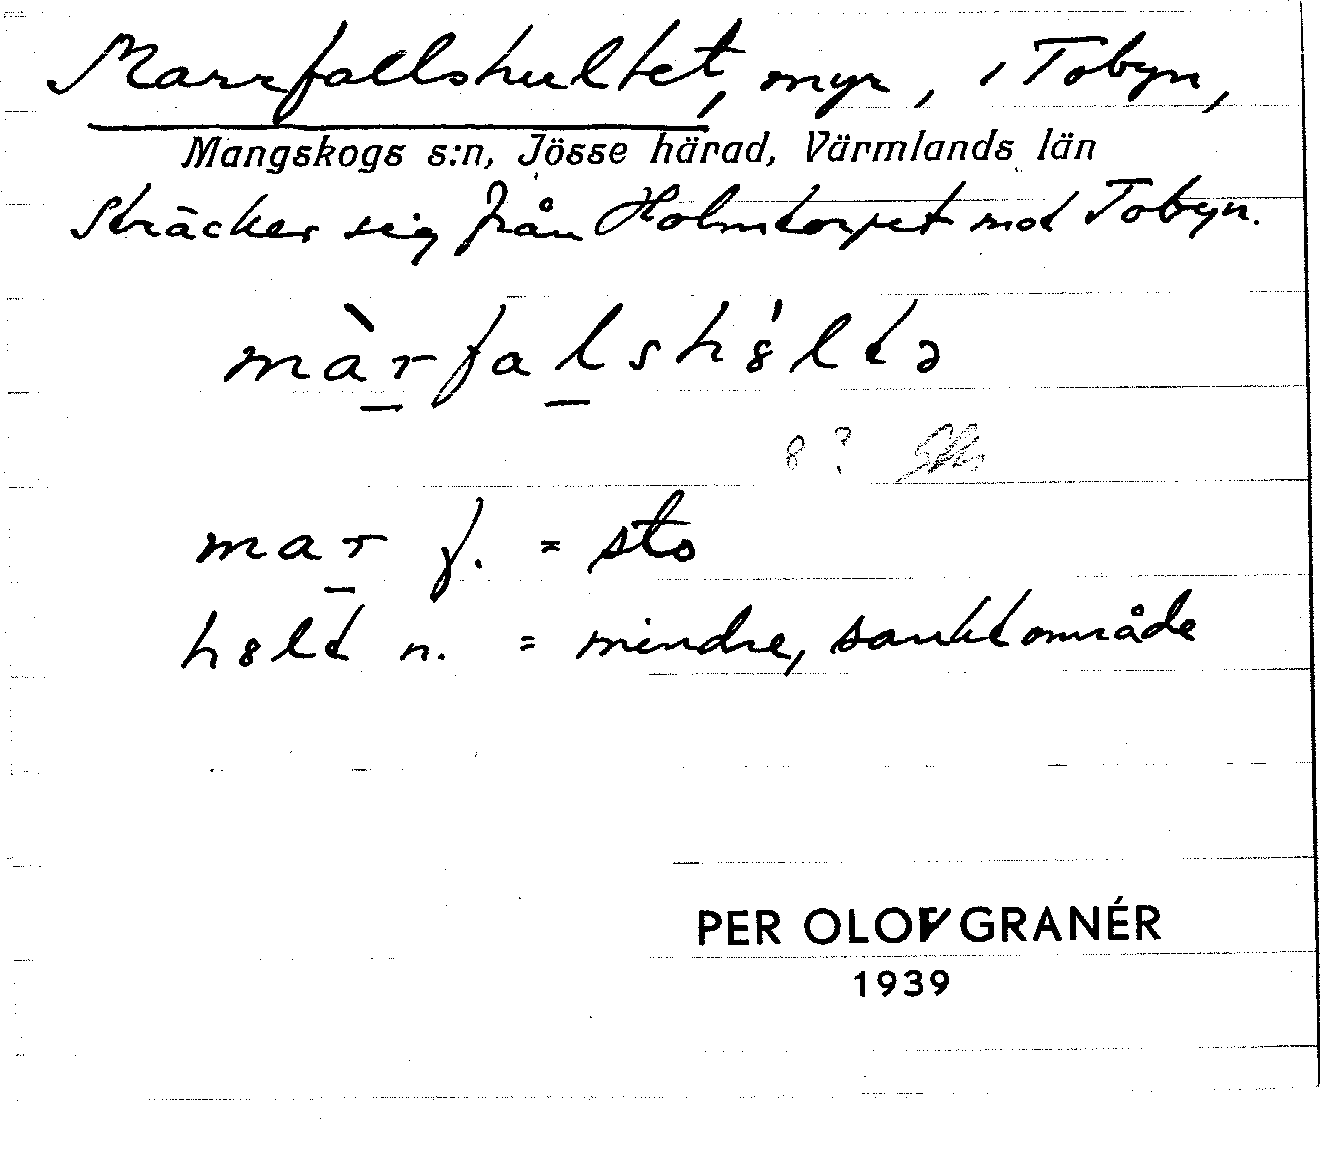 Marrfallshultet, myr, i Tobyn,
Mangskogs s:n, Jösse härad, Värmlands län
Sträcker sig från Holmtorpet mot Tobyn.
màrfalshȣ́ltə
ȣ?
mar f. = sto
hȣlt n. = mindre, sankt område
PER OLOV GRANÉR
1939